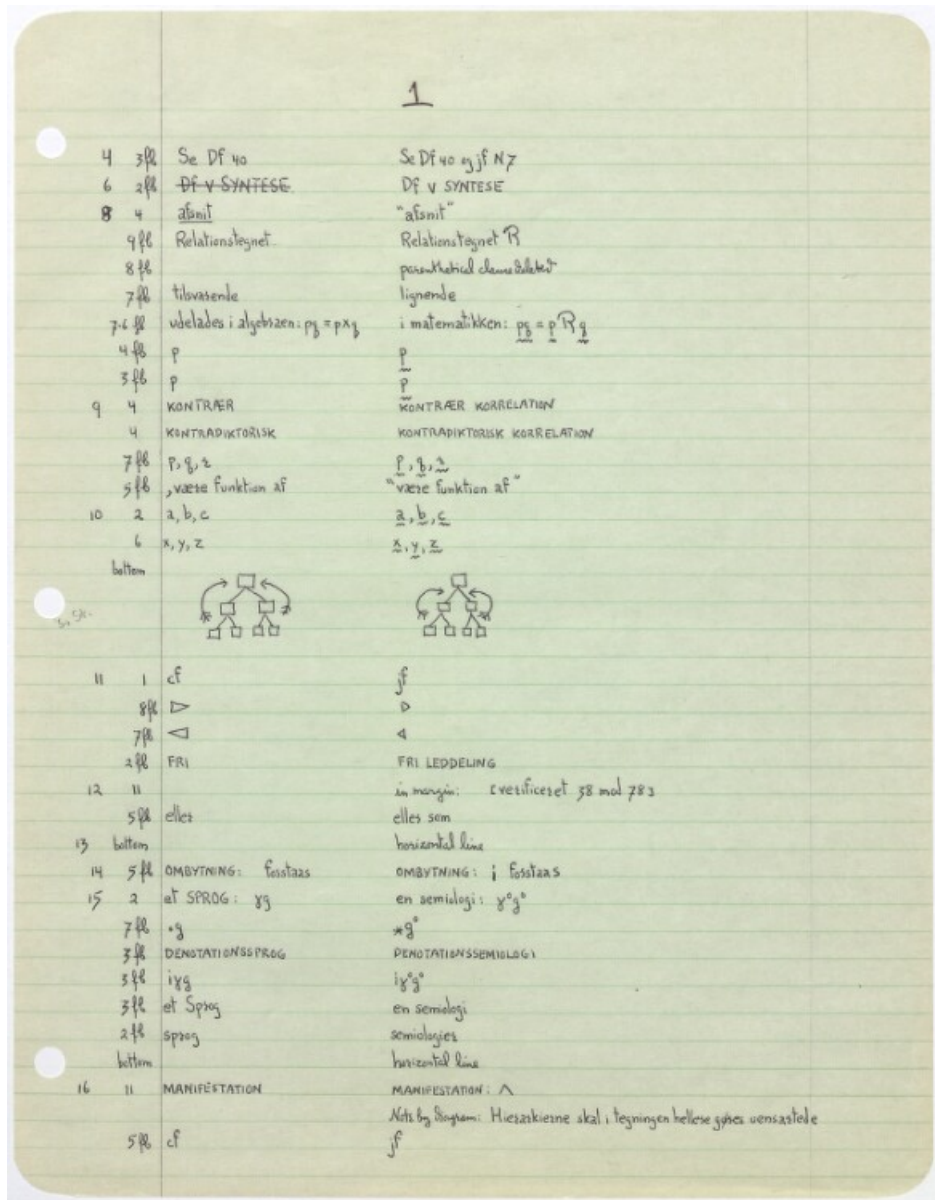 1
4 3fb Se Df 40 Se Df 40 og jf N7
6 2fb Df V SYNTESE Df V SYNTESE
8 4 afsnit "afsnit"
9fb Relationstegnet Relationstegnet R
8fb parenthetical clause deleted
7fb tilsvarende lignende
7-6 fb udelades i algebraen: pq = p×q i matematikken: pq = p R q
4fb p p
3fb p p
9 4 KONTRÆR KONTRÆR KORRELATION
4 KONTRADIKTORISK KONTRADIKTORISK KORRELATION
7fb p, q, r p, q, r
5fb ,være funktion af "være funktion af"
10 2 a, b, c a, b, c
6 x, y, z x, y, z
bottom
11 1 cf jf
8fb ▷ ▷
7fb ◁ ◁
2fb FRI FRI LEDDELING
12 11 in margin: [verificeret 38 mod 78]
5fb eller eller som
13 bottom horizontal line
14 5fb OMBYTNING: forstaas OMBYTNING: i forstaas
15 2 et SPROG: γg en semiologi: γ°g°
7fb *g *g°
3fb DENOTATIONSSPROG DENOTATIONSSEMIOLOGI
3fb iγg iγ°g°
3fb et Sprog en semiologi
2fb sprog semiologier
bottom horizontal line
16 11 MANIFESTATION MANIFESTATION: Λ
Note by Diagram: Hierarkierne skal i tegningen hellere gøres uensartede
5fb cf jf